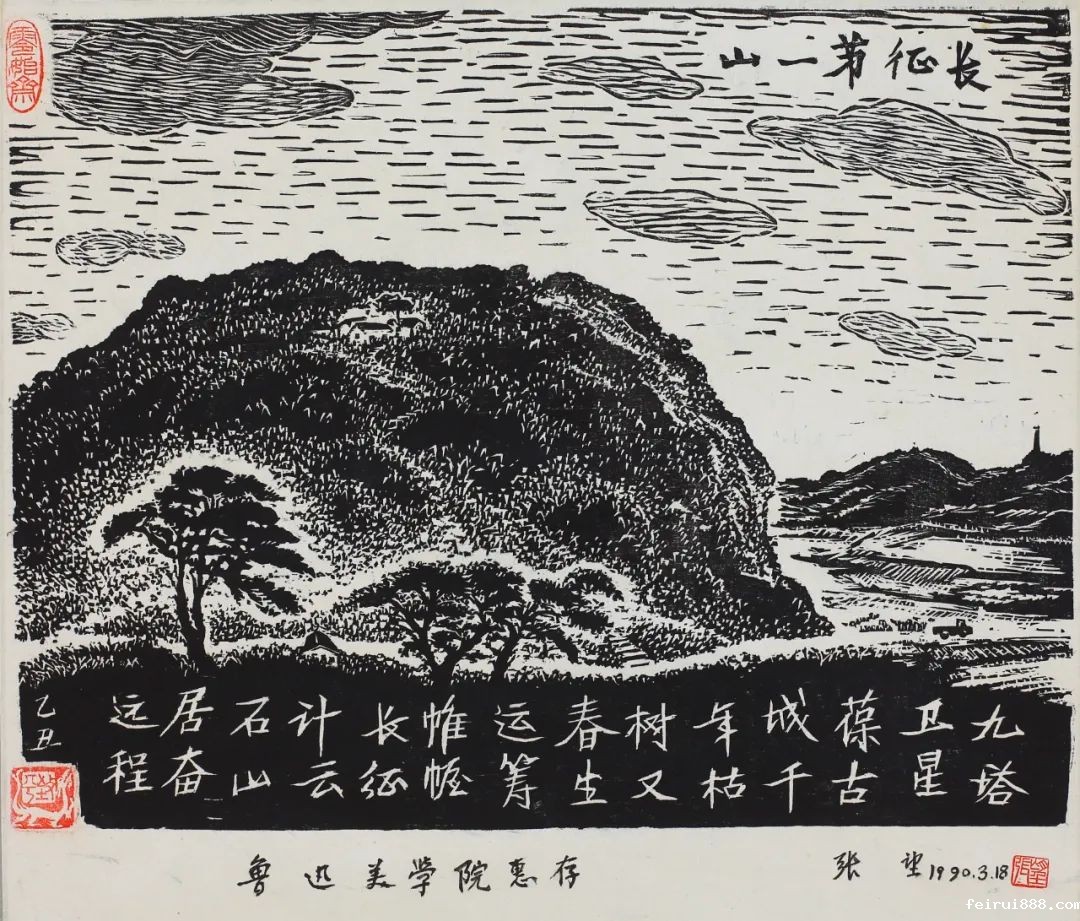 长征苐一山
九塔
卫星
葆古
城千
年枯
树又
春生
运筹
帷幄
长征
计云
石山
居奋
远程
乙丑
鲁迅美学院惠存
张望 1990.3.18
feirui888.com